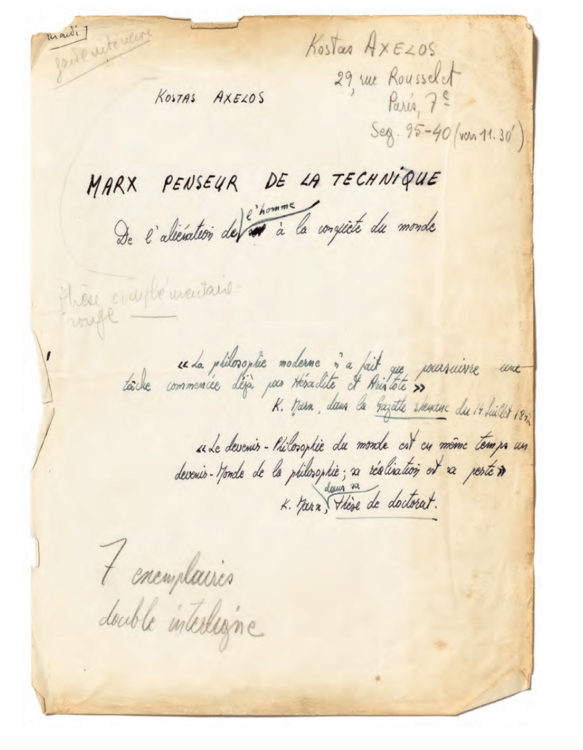 mardi
Kostas AXELOS
29, rue Rousselet
Paris, 7e
Seg. 95-40 (vers 11.30')
KOSTAS AXELOS
MARX PENSEUR DE LA TECHNIQUE
De l'aliénation de l'homme à la conquête du monde
thèse complémentaire
rouge
«La philosophie moderne n'a fait que poursuivre une
tâche commencée déjà par Héraclite et Aristote»
K. Marx, dans la Gazette rhénane du 14 Juillet 1842
«Le devenir-Philosophie du monde est en même temps un
devenir-Monde de la philosophie; sa réalisation est sa perte»
K. Marx, dans sa thèse de doctorat.
7 exemplaires
double interligne